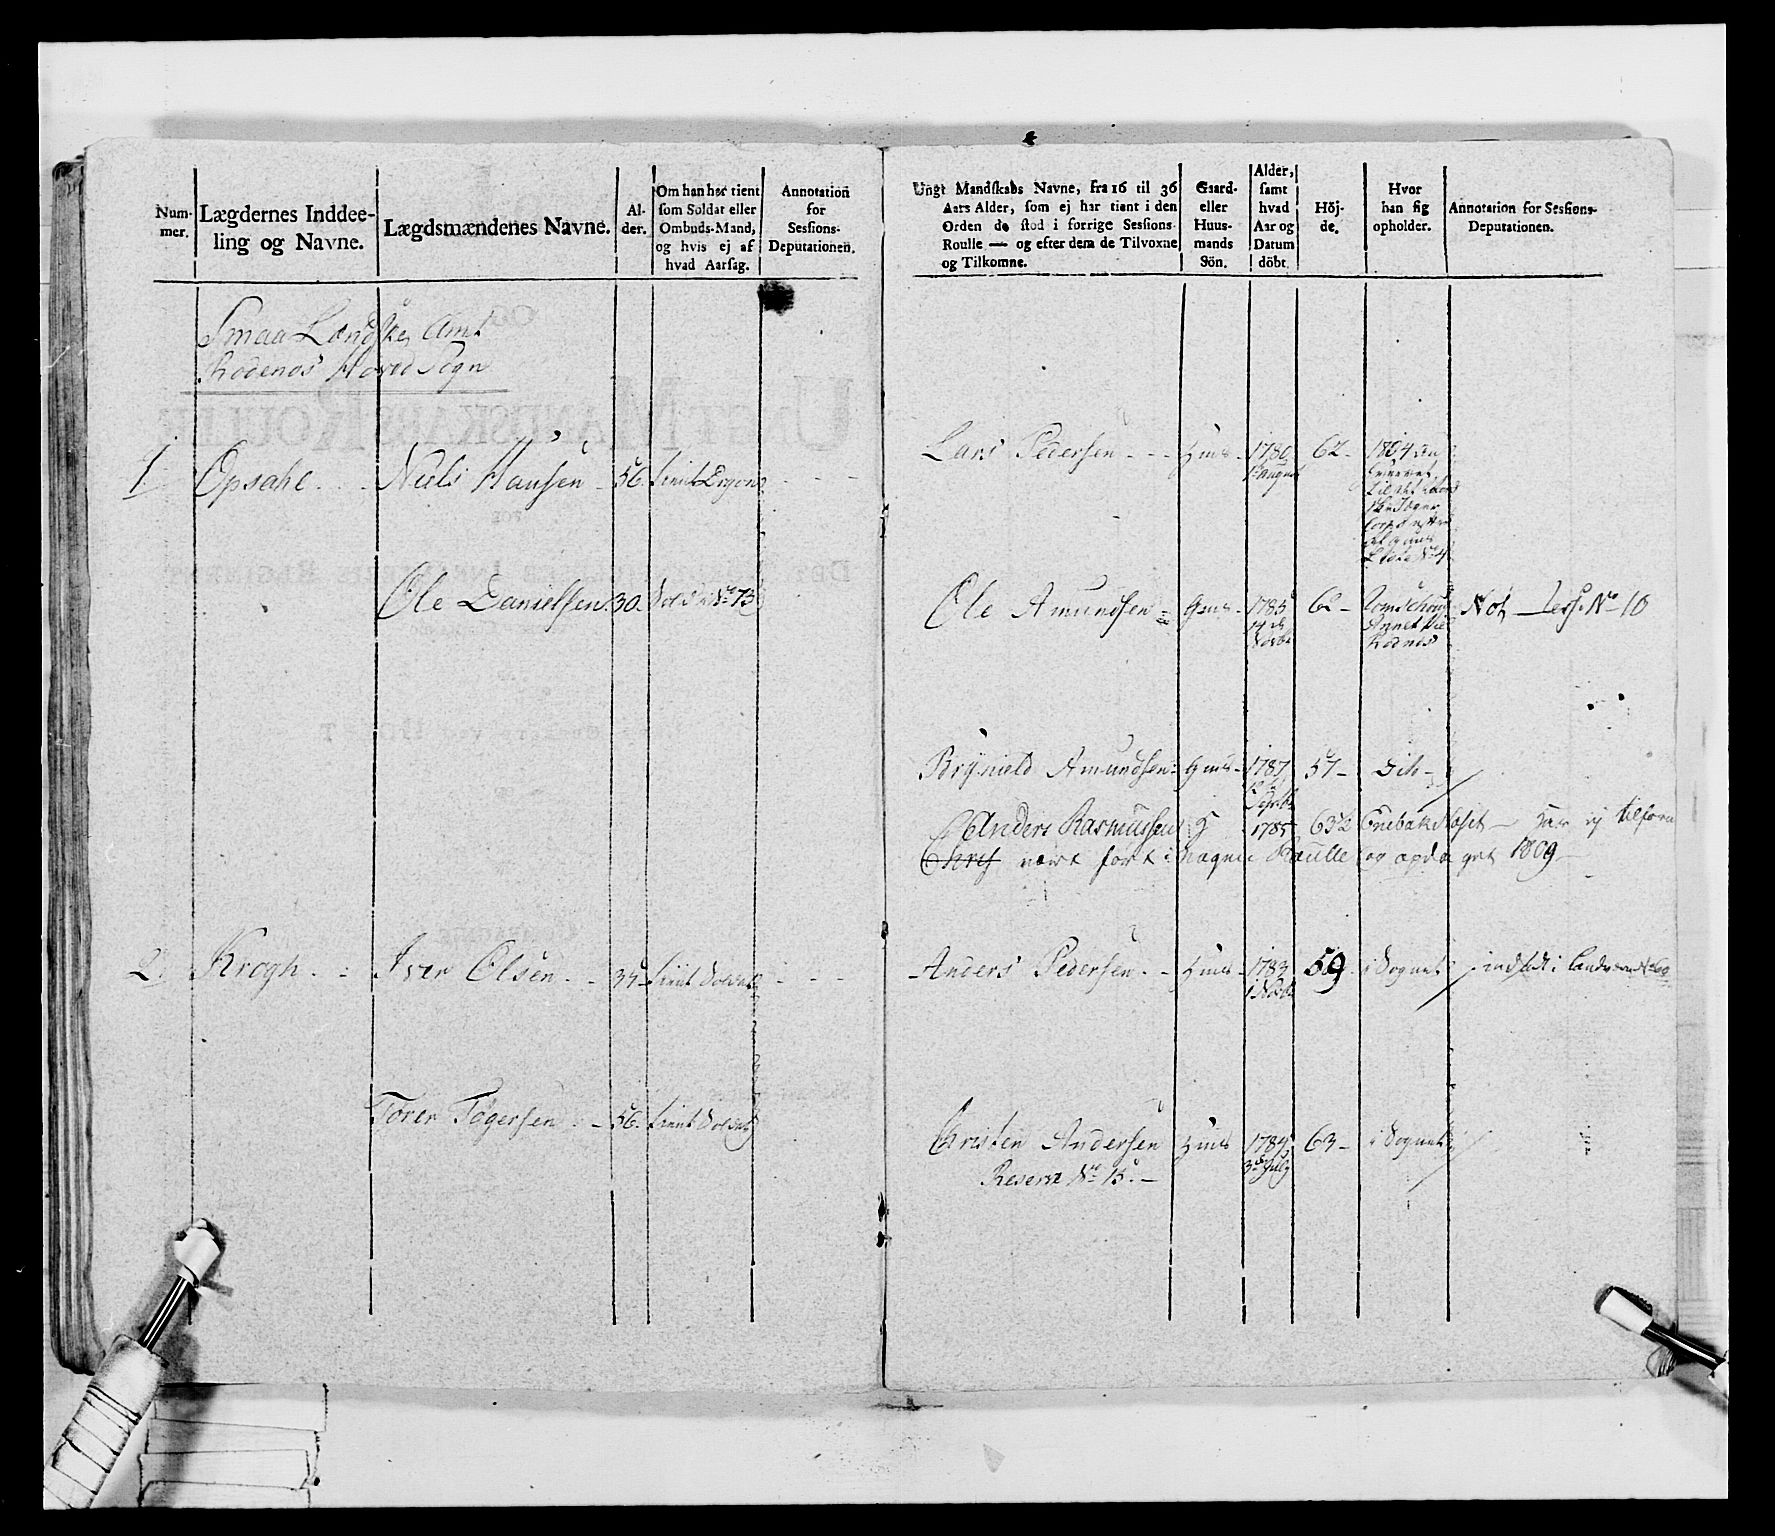 Num-
mer.
Lægdernes Inddee-
ling og Navne.
Lægdsmændenes Navne.
Al-
der.
Om han har tient
som Soldat eller
Ombuds-Mand,
og hvis ej af
hvad Aarsag.
Annotation
for
Sessions-
Deputationen.
Smaa Lændske Amt
Rødenæs Hoved Sogn
1 Opsahl Niels Hansen 56. tient Dragon
Ole Danielsen. 30. Sold: No 13
2. Krogh Iver Olsen 34 tient Soldat
Torer Togersen 56. tient Soldat
Ungt Mandskabs Navne, fra 16 til 36
Aars Alder, som ej har tient i den
Orden de stod i forrige Sessions-
Roulle — og efter dem de Tilvoxne
og Tilkomne.
Gaard-
eller
Huus-
mands
Sön.
Alder,
samt
hvad
Aar og
Datum
döbt.
Höj-
de.
Hvor
han sig
opholder.
Annotation for Sessions-
Deputationen.
Lars Pedersen - - Huus - 1780 62 - 1804
August
No 4
Ole Amundsen Gaus - 1785 62 - Not No 10
14 de
Rødnæs
Brynield Amundsen Gaus - 1787 57 - dito
Anders Rasmussen H 1785 63½ Enebak har ej tilforn
været ført i nogen Roulle og opdaget 1809
Anders Pedersen - - Huus - 1783 59 i Sognet indsadt i Landværnet
Christen Andersen Huus 1784 63 - i Sognet
Reserve No 13. - 3 July